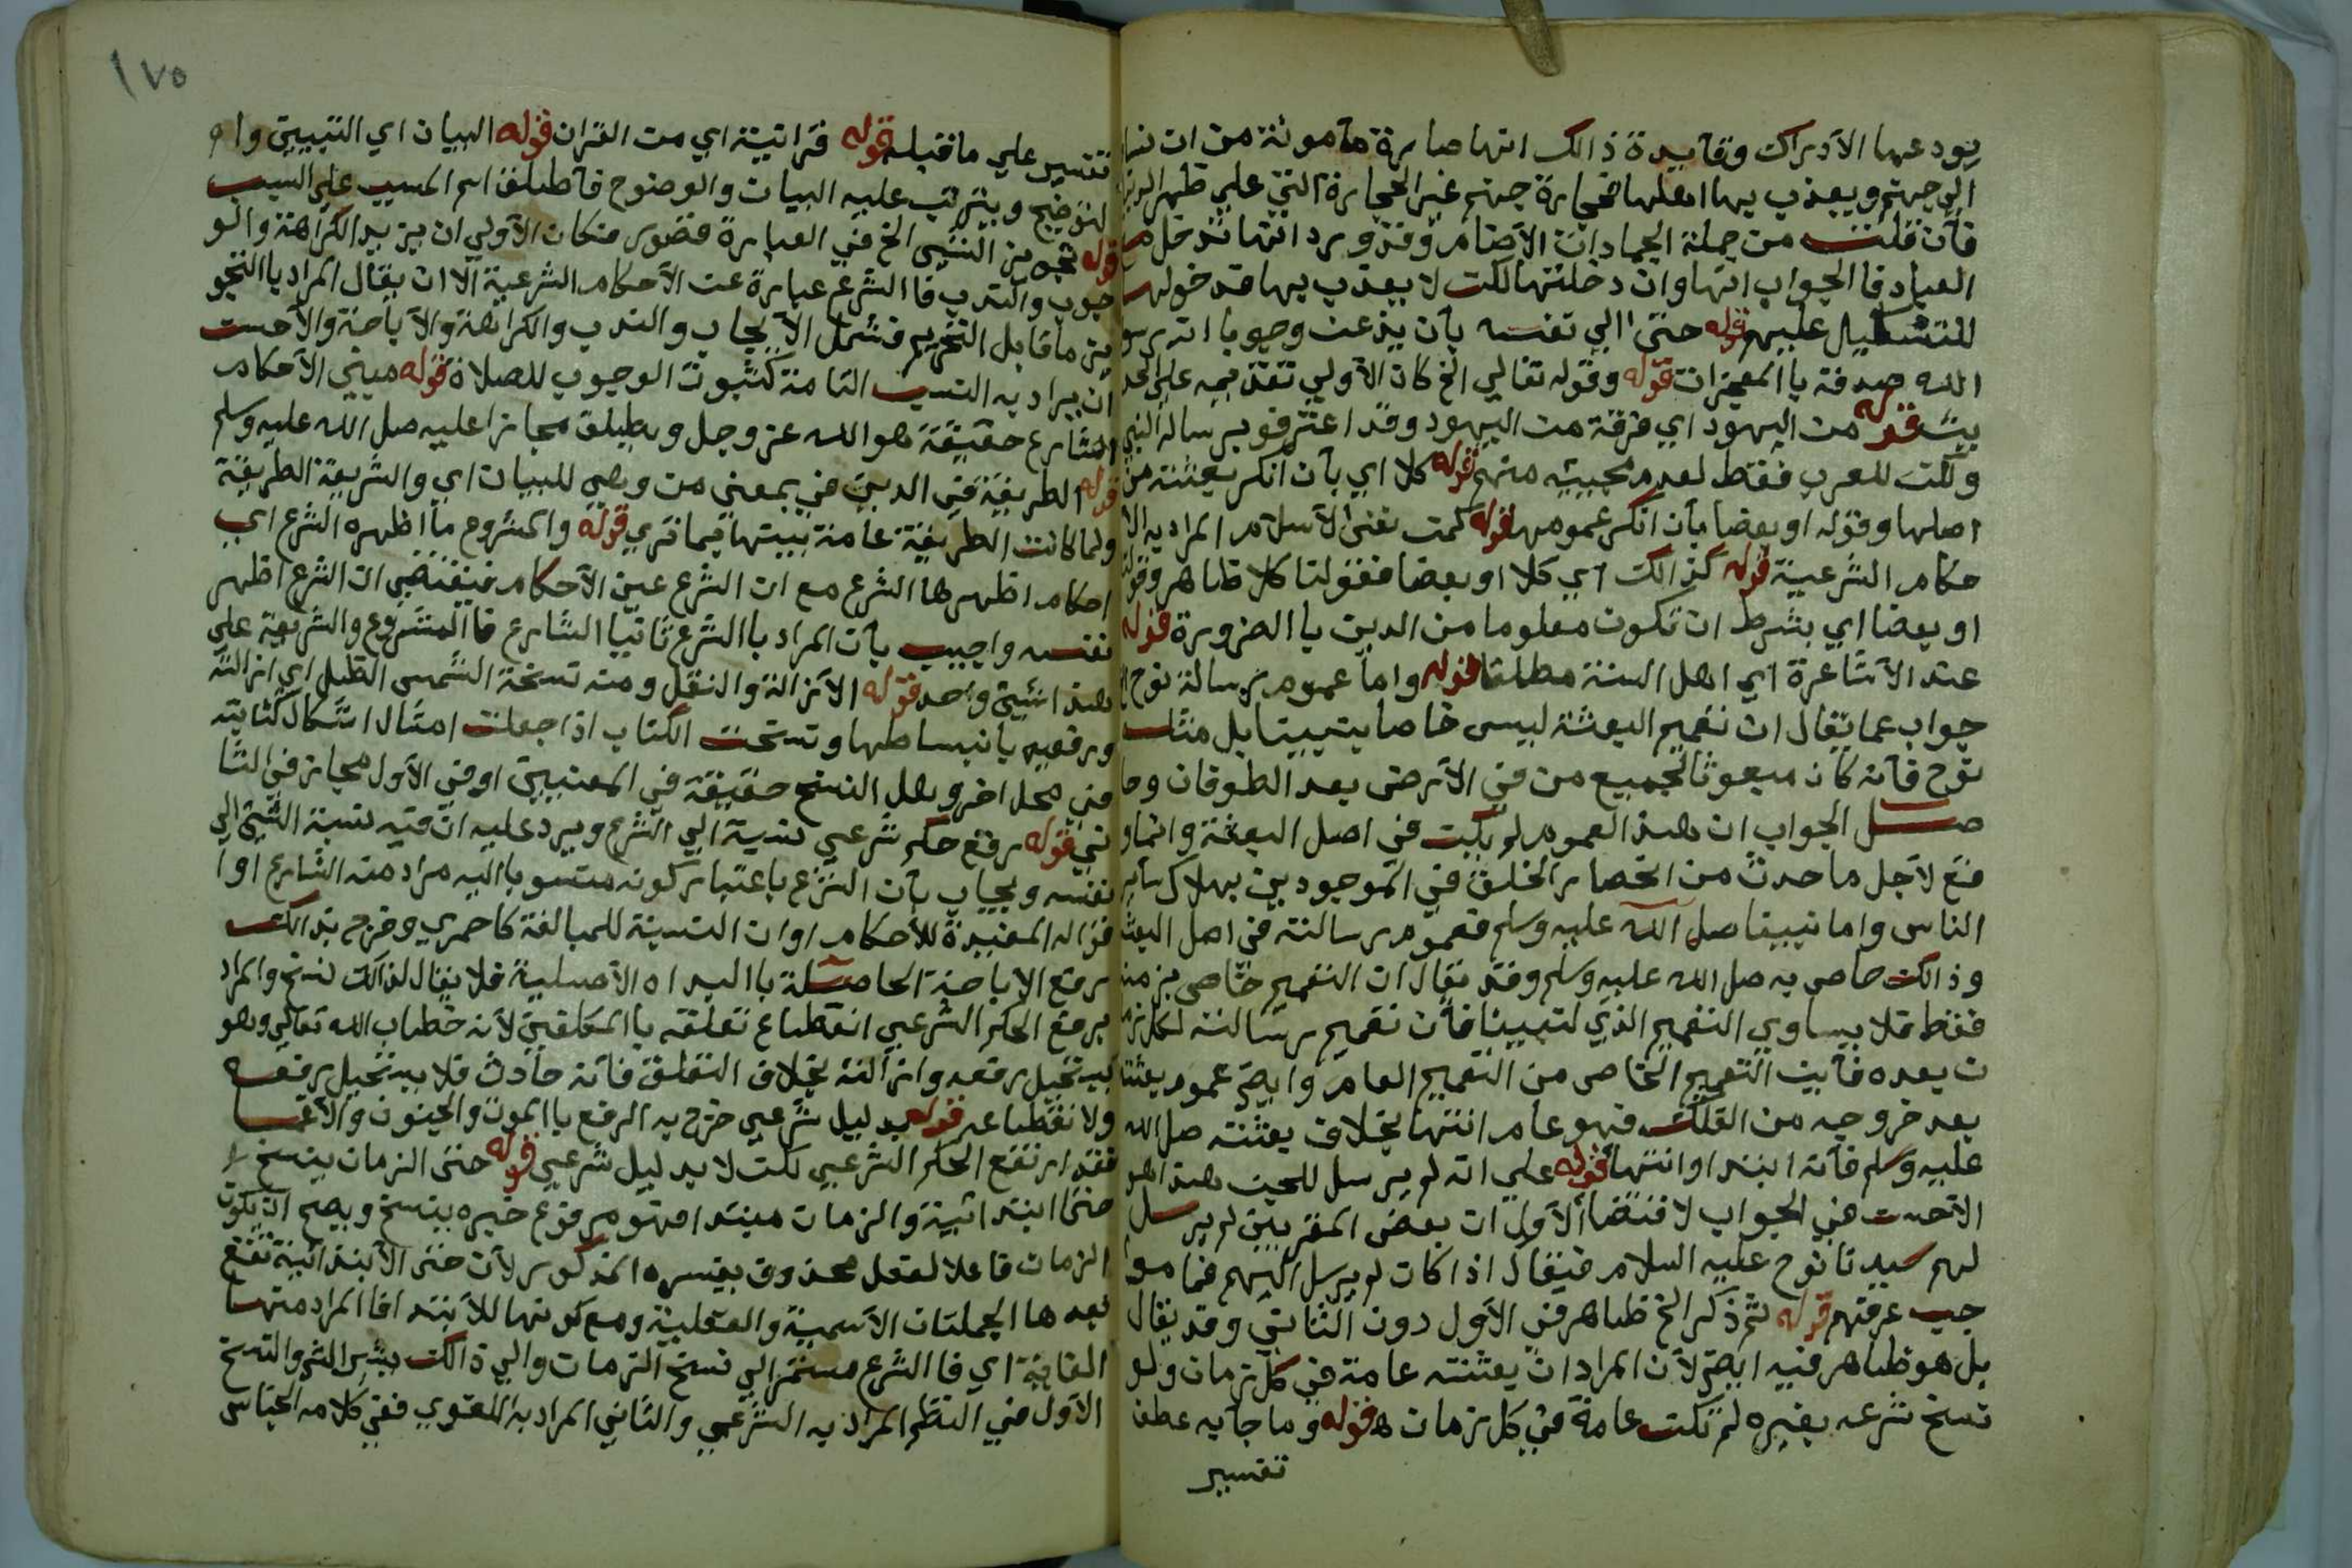 يودعها الادراك وفايدة ذالك انها صايرة مأمونة من ان
الي جهنم ويعذب بها اهلها فحجارة جهنم غير الحجارة التي علي ظهر
فان قلت من جملة الجمادات الاصنام وقد ورد انها تدخل
العباد فا الجواب انها وان دخلتها لكن لا يعذب بها قد خولها
عليهم قوله حتي الي نفسه بأن يذعن وجوبا انه
الله صدقه با المعجزات قوله وقوله تعالي الخ كان الاولي تقديمه علي
قوله من اليهود اي فرقة من اليهود وقد اعترفو برسالة النبي
ولكن للعرب فقط لعدم مجييه منهم قوله كلا اي بأن انكر بعثته من
اصلها وقوله او بعضا بأن انكر عمومها قوله كمت نفي الاسلام المراد به الا
حكام الشرعية قوله كذالك اي كلا او بعضا فقولنا كلا ظاهر وقولنا
او بعضا اي بشرط ان تكون معلوما من الدين با الضرورة قوله
عند الاشاعرة اي اهل السنة مطلقا قوله واما عموم رسالة نوح
جواب عما يقال ان تعميم البعثة ليس خاصا بنبينا بل
نوح فانه كان مبعوثا لجميع من في الارض بعد الطوفان وحا
صل الجواب ان هذا العموم لم يكن في اصل البعثة وانما و
قع لاجل ما حدث من انحصار الخلق في الموجودين بهلاك ساير
الناس واما نبينا صل الله عليه وسلم فعموم رسالته في اصل البعثة
وذالك خاص به صل الله عليه وسلم وقد يقال ان التعميم خاص بزمنه
فقط فلا يساوي التعميم الذي لنبينا فأن تعميم رسالته لكل زما
ن بعده فأين التعميم الخاص من التعميم العام وايض عموم بعثته
بعد خروجه من الفلك فهو عام انتها بخلاف بعثته صل الله
عليه وسلم فانه ابتدا وانتها قوله علي انه لم يرسل للجن هذا هو
الاحسن في الجواب لاقتضا الاول ان بعض المقربين لم يرسل
لهم سيدنا نوح عليه السلام فيقال اذا كان لم يرسل اليهم فما مو
جب غرقهم قوله ثم ذكر الخ ظاهر في الاول دون الثاني وقد يقال
بل هو ظاهر فيه ايض لان المراد ان بعثته عامة في كل زمان ولو
نسخ شرعه بغيره لم تكن عامة في كل زمان ه قوله وما جا به عطف
تفسير
١٧٥
تفسير علي ما قبله قوله قرانيته اي من القران قوله البيان اي التبيين وا
لتوضيح ويترتب عليه البيان والوضوح فأطلق اسم المسبب علي السبب
قوله تجويز الشي الخ في العبارة قصور فكان الاولي ان يزيد الكراهة والو
جوب والندب فا الشرع عبارة عن الاحكام الشرعية الا ان يقال المراد با التجو
يز ما قابل التحريم فشمل الايجاب والندب والكراهة والاباحة والاحسن
ان يراد به النسب التامة كثبوت الوجوب للصلاة قوله مبين الاحكام
الشارع حقيقة هو الله عز وجل ويطلق مجازا عليه صل الله عليه وسلم
قوله الطريقة في الدين في بمعني من وهي للبيان اي والشريعة الطريقة
ولما كانت الطريقة عامة بينها فيما تري قوله والمشروع ما اظهره الشرع اي
احكام اظهرها الشرع مع ان الشرع عين الاحكام فيقتضي ان الشرع اظهر
نفسه واجيب بأن المراد با الشرع ثانيا الشارع فا المشروع والشريعة علي
هذا شيي واحد قوله الازالة والنقل ومنه نسخة الشمس الظل اي ازالته
ورفعه بانبساطها ونسخت الكتاب اذا جعلت امثال اشكال كتابته
في محل اخر وهل النسخ حقيقة في المعنيين او في الاول مجاز في الثا
ني قوله رفع حكم شرعي نسبة الي الشرع ويرد عليه ان فيه نسبة الشي الي
نفسه ويجاب بأن الشرع باعتبار كونه منسوبا اليه مراد منه الشارع او ا
قواله المفيدة للاحكام او ان النسبة للمبالغة كاحمري وخرج بذالك
رفع الاباحة الحاصلة با البراه الاصلية فلا يقال لذالك نسخ والمراد
برفع الحكم الشرعي انقطاع تعلقه با المكلفين لانه خطاب الله تعالي وهو
يستحيل رفعه وازالته بخلاف التعلق فأنه حادث فلا يستحيل رفعه
ولا نقطاعه قوله بدليل شرعي خرج به الرفع با الموت والجنون والاغما
فقد ارتفع الحكم الشرعي لكن لا بدليل شرعي قوله حتي الزمان ينسخ
حتي ابتدائية والزمان مبتدا مرفوع خبره ينسخ ويصح ان يكون
الزمان فاعلا لفعل محذوف يفسره المذكور لان حتي الابتدائية تقع
بعدها الجملتان الاسمية والفعلية ومع كونها للابتدا فا المراد منها
الغاية اي فا الشرع مستمر الي نسخ الزمان والي ذالك يشير الش والنسخ
الاول في النظم المراد به الشرعي والثاني المراد به اللغوي ففي كلامه الجناس